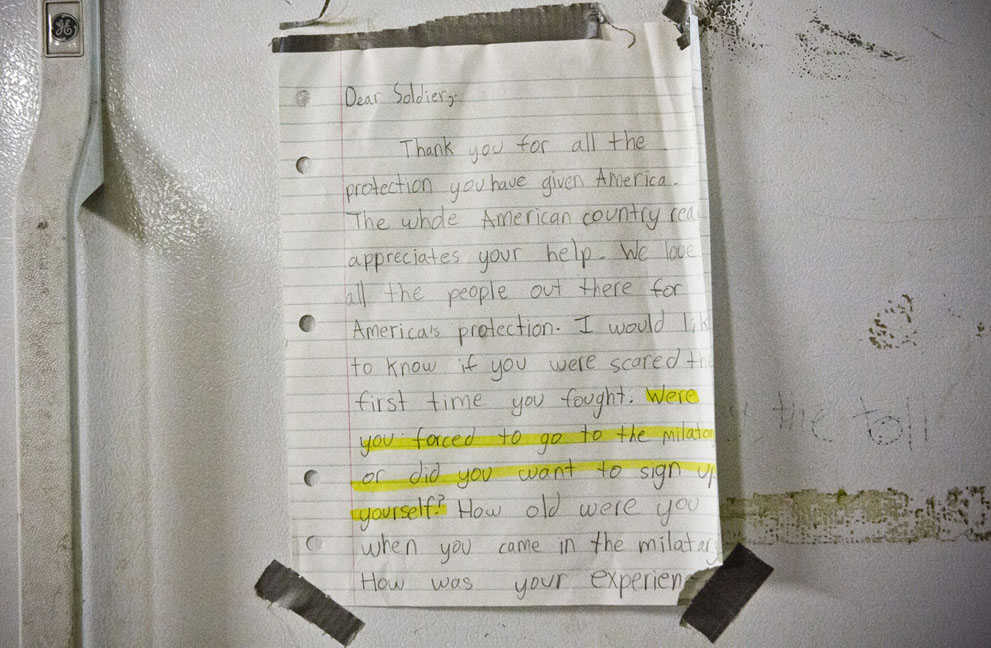 Dear Soldier,
Thank you for all the
protection you have given America.
The whole American country rea
appreciates your help. We love
all the people out there for
America's protection. I would lik
to know if you were scared th
first time you fought. Were
you forced to go to the milatar
or did you want to sign up
yourself? How old were you
when you came in the milatary
How was your experien
GE
the toll